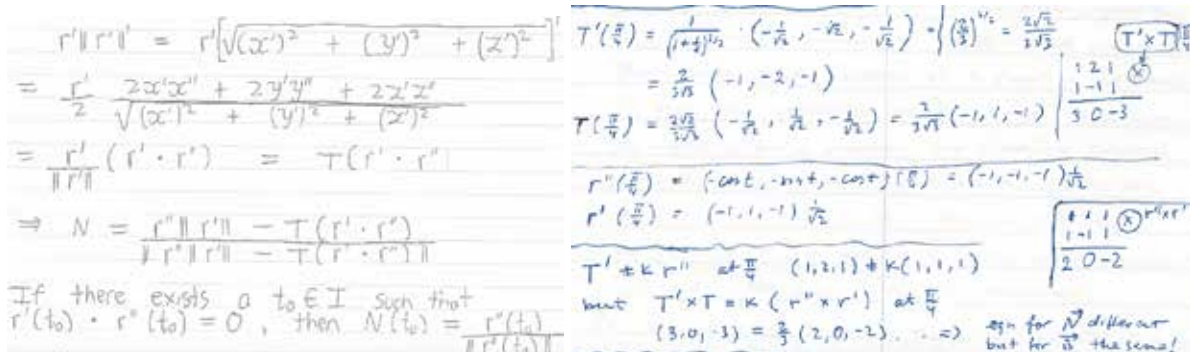 r'||r'||' = r'[√(x')² + (y')² + (z')²]'
= r'/2 (2x'x'' + 2y'y'' + 2z'z'')/√((x')² + (y')² + (z')²)
= r'/||r'|| (r' · r'') = T(r' · r'')
⇒ N = (r''||r'|| − T(r' · r''))/||r''||r'|| − T(r' · r'')||
If there exists a t₀ ∈ I such that
r'(t₀) · r''(t₀) = 0, then N(t₀) = r''(t₀)/||r''(t₀)||
T'(π/4) = 1/(1+½)^(3/2) · (−1/√2, −√2, −1/√2) = (2/3)^(3/2) = 2√2/3√3
= 2/3√3 (−1, −2, −1)
T(π/4) = 2√2/3√3 (−1/√2, 1/√2, −1/√2) = 2/3√3 (−1, 1, −1)
T' × T
1 2 1 ⊗
1 −1 1
3 0 −3
r''(π/4) = (−cost, −sint, −cost) (π/4) = (−1, −1, −1) 1/√2
r'(π/4) = (−1, 1, −1) 1/√2
1 1 1 ⊗ r'' × r'
1 −1 1
2 0 −2
T' ≠ k r'' at π/4 (1,2,1) ≠ k(1,1,1)
but T' × T = k (r'' × r') at π/4
(3, 0, −3) = 3/2 (2, 0, −2) ... ⇒
eqn for N different
but for B the same!